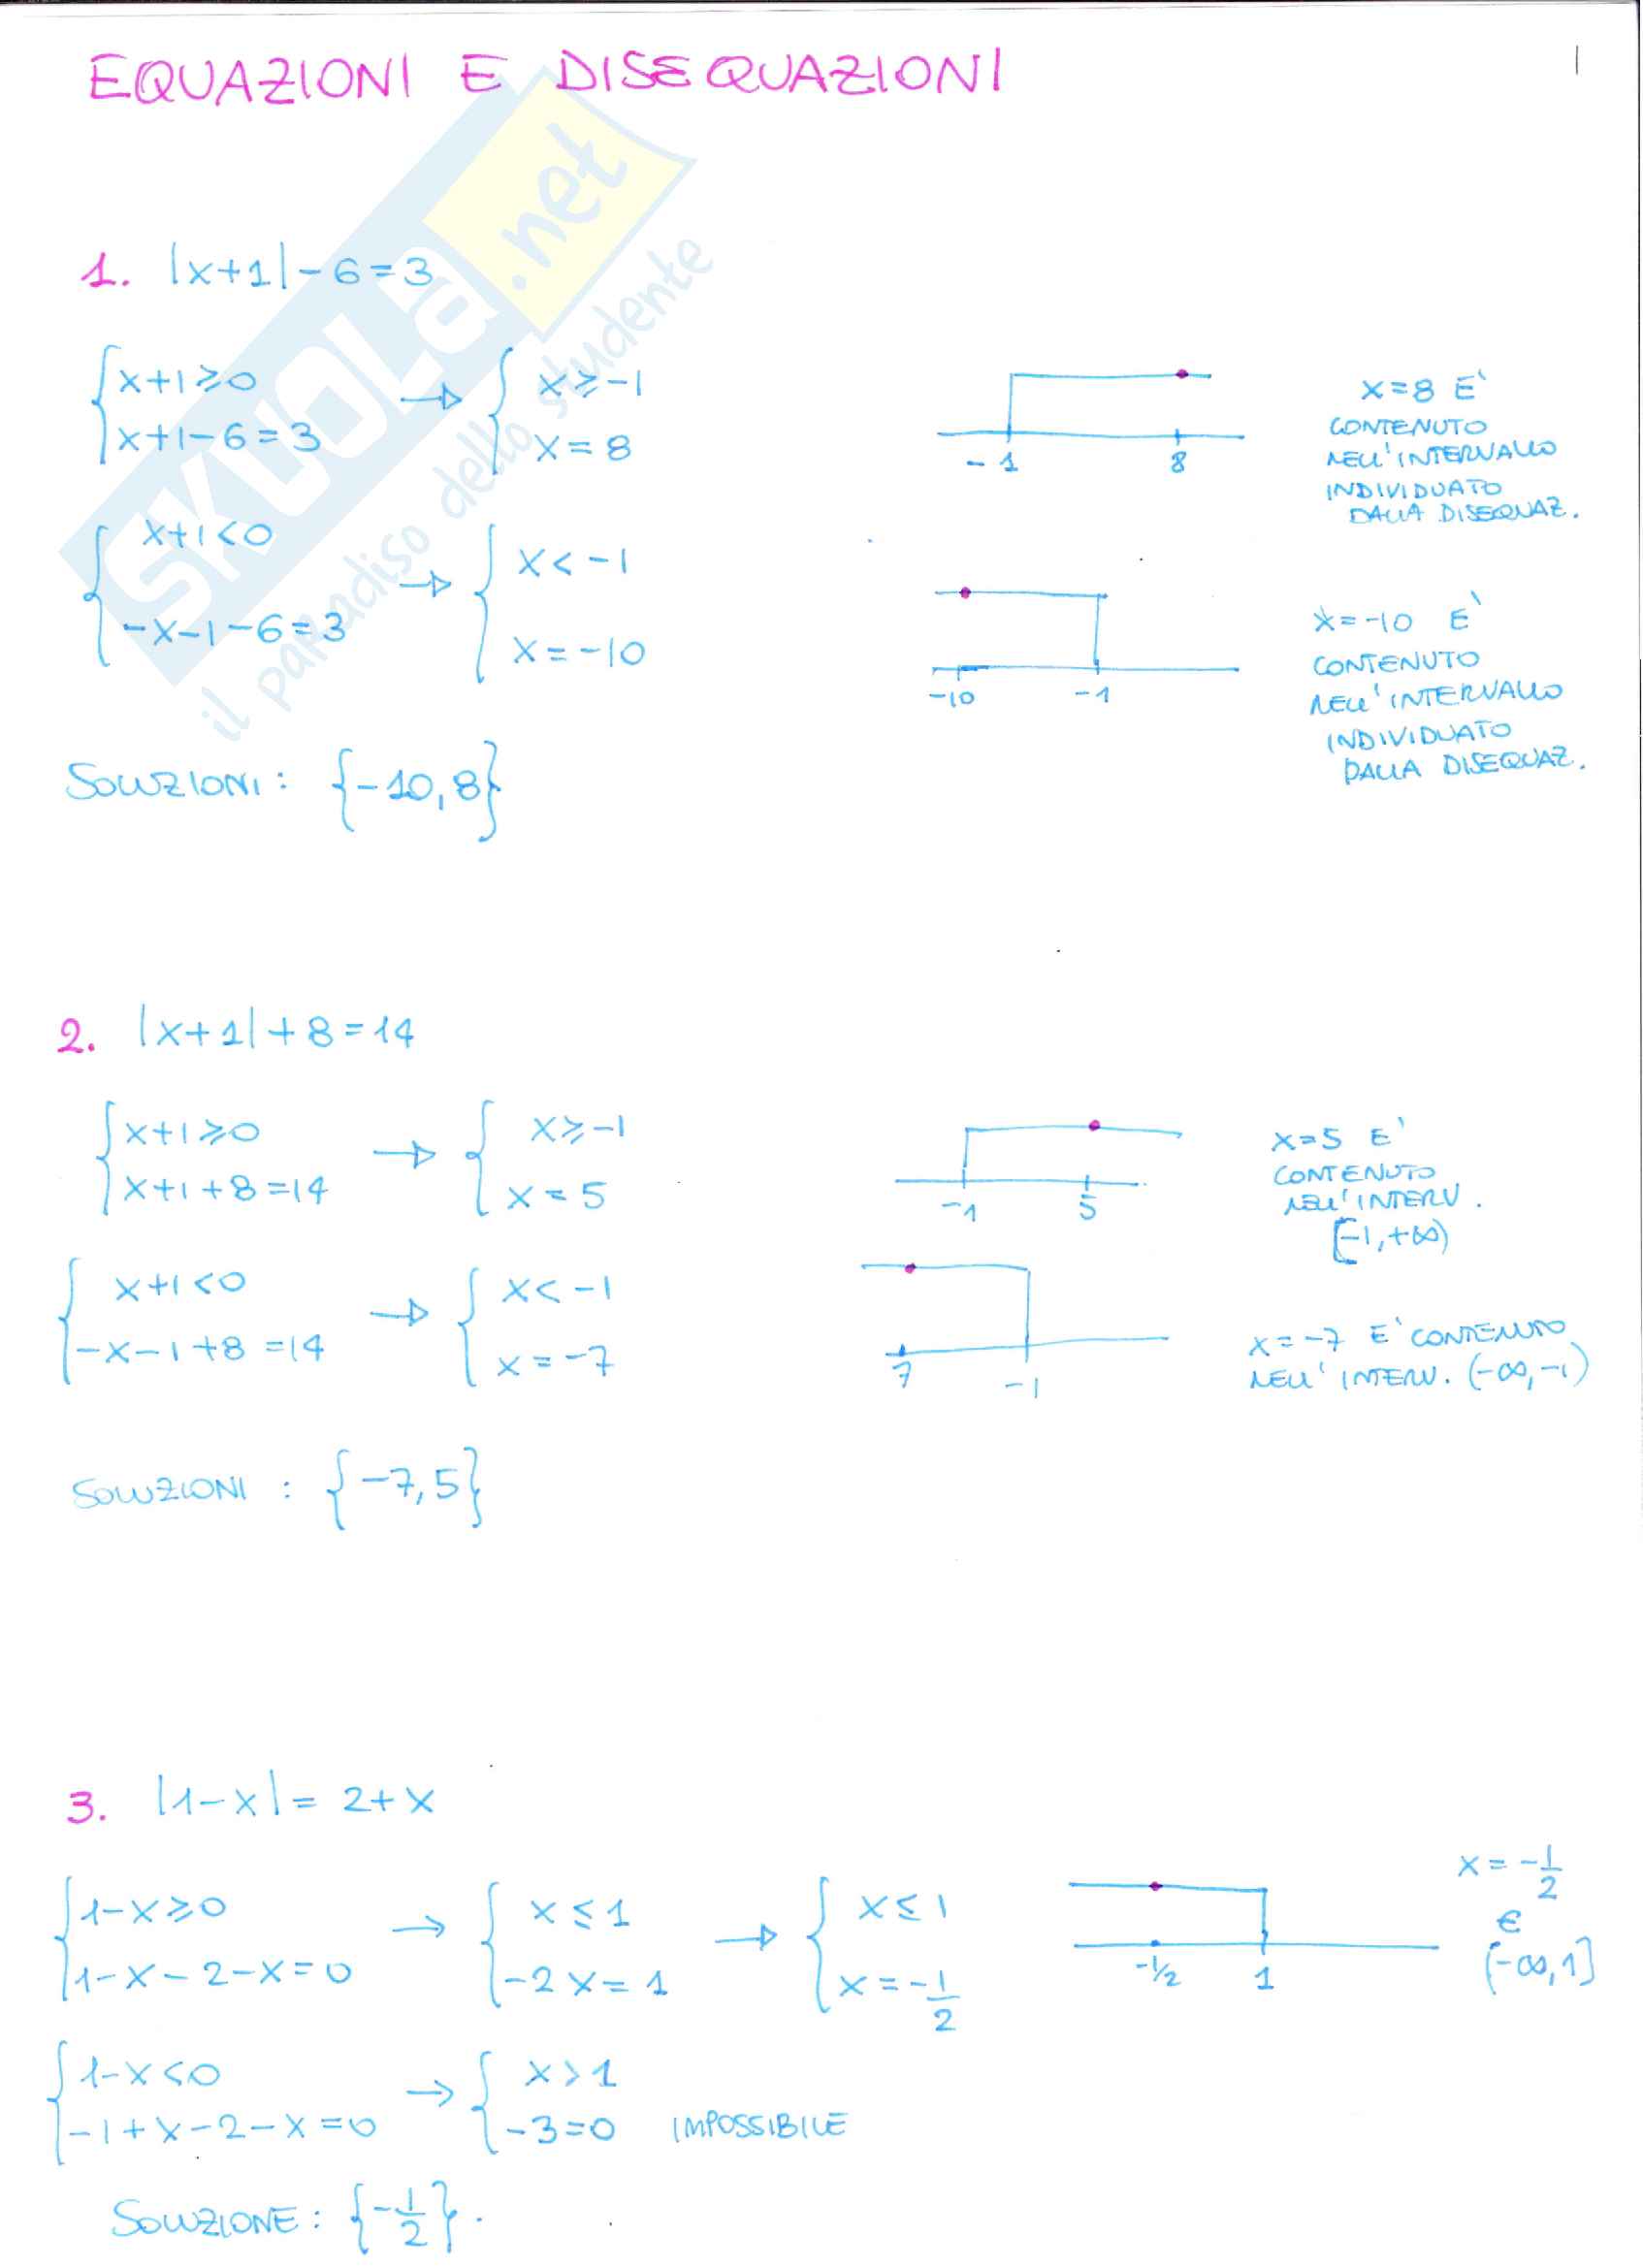 EQUAZIONI E DISEQUAZIONI
1
SKUOLA.net
il paradiso dello studente
1. |x+1|-6=3
{ x+1⩾0
x+1-6=3
→ { x⩾-1
x=8
-1 8
x=8 E'
CONTENUTO
NELL'INTERVALLO
INDIVIDUATO
DALLA DISEQUAZ.
{ x+1<0
-x-1-6=3
→ { x<-1
x=-10
-10 -1
x=-10 E'
CONTENUTO
NELL'INTERVALLO
INDIVIDUATO
DALLA DISEQUAZ.
SOLUZIONI: {-10,8}
2. |x+1|+8=14
{ x+1⩾0
x+1+8=14
→ { x⩾-1
x=5
-1 5
x=5 E'
CONTENUTO
NELL'INTERV.
[-1,+∞)
{ x+1<0
-x-1+8=14
→ { x<-1
x=-7
7 -1
x=-7 E' CONTENUTO
NELL'INTERV. (-∞,-1)
SOLUZIONI: {-7,5}
3. |1-x|=2+x
{ 1-x⩾0
1-x-2-x=0
→ { x≤1
-2x=1
→ { x≤1
x=-1/2
-1/2 1
x=-1/2
∈
(-∞,1]
{ 1-x<0
-1+x-2-x=0
→ { x>1
-3=0 IMPOSSIBILE
SOLUZIONE: {-1/2}.